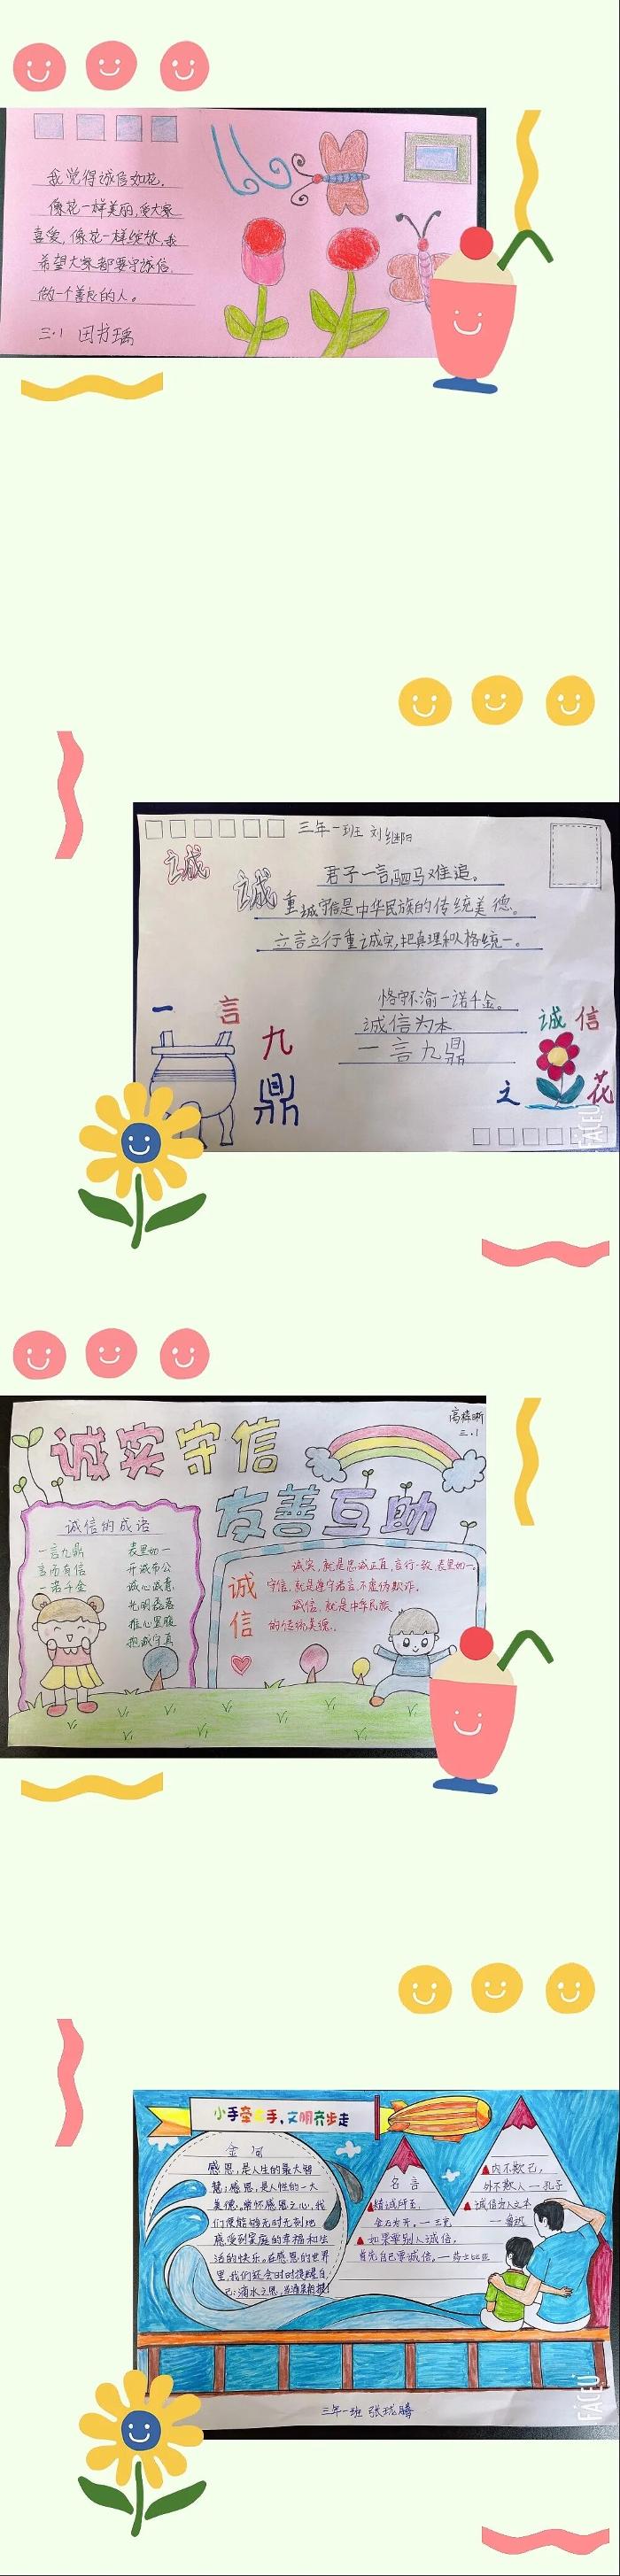 我觉得诚信如花,
像花一样美丽,受大家
喜爱,像花一样绽放,我
希望大家都要守诚信,
做一个善良的人。
三.1
三年一班 刘继阳
诚
诚
君子一言,驷马难追。
重诚守信是中华民族的传统美德。
立言立行重诚实,把真理和人格统一。
恪守不渝一诺千金。
诚信为本
一言九鼎
一言
九
鼎
诚信
之花
FACEU
诚实守信
友善互助
三.1
诚信的成语
一言九鼎
言而有信
一诺千金
表里如一
开诚布公
诚心诚意
光明磊落
推心置腹
抱诚守真
诚信
诚实,就是忠诚正直,言行一致,表里如一。
守信,就是遵守诺言,不虚伪欺诈。
诚信,就是中华民族
的传统美德。
小手牵大手,文明齐步走
金句
感恩,是人生的最大智
慧;感恩,是人性的一大
美德。常怀感恩之心,我
们便能够无时无刻地
感受到家庭的幸福和生
活的快乐。在感恩的世界
里,我们还会时时提醒自
己:滴水之恩,当涌泉相报!
名言
精诚所至,
金石为开。
如果要别人诚信,
首先自己要诚信。—莎士比亚
内不欺己,
外不欺人 —孔子
诚信为人之本
—鲁迅
三年一班 张珑腾
FACEU